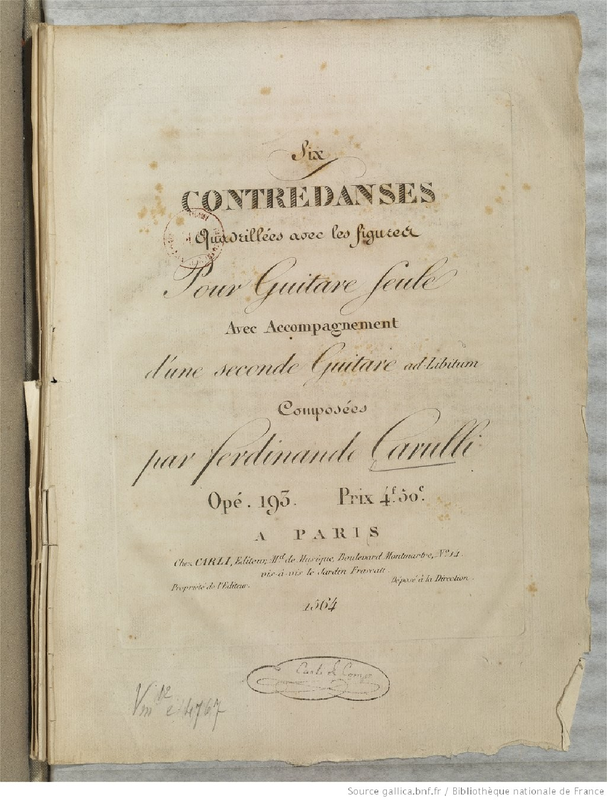 Six
CONTREDANSES
Quadrillées avec les figures
Pour Guitare Seule
Avec Accompagnement
d'une seconde Guitare ad-Libitum
Composées
par Ferdinande Carulli
Opé. 193. Prix 4f. 50c.
A PARIS
Chez CARLI, Editeur, Md. de Musique, Boulevard Montmartre, No. 14
vis-à-vis le Jardin Frascati
Propriété de l'Editeur. Déposé à la Direction.
1564
Carli & Comp
Vm12 e 4767
Source gallica.bnf.fr / Bibliothèque nationale de France